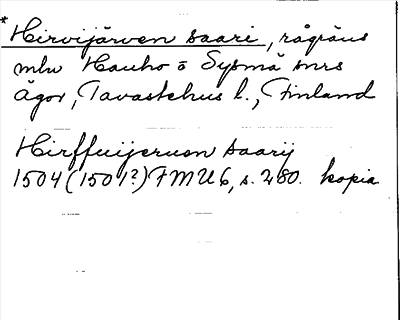 * Hirvijärven saari, rågräns
mln Hauho o Sysmä snrs
ägor, Tavastehus l., Finland
Hirffuijeruen saarij
1504 (1501?) FMU 6, s. 280. kopia